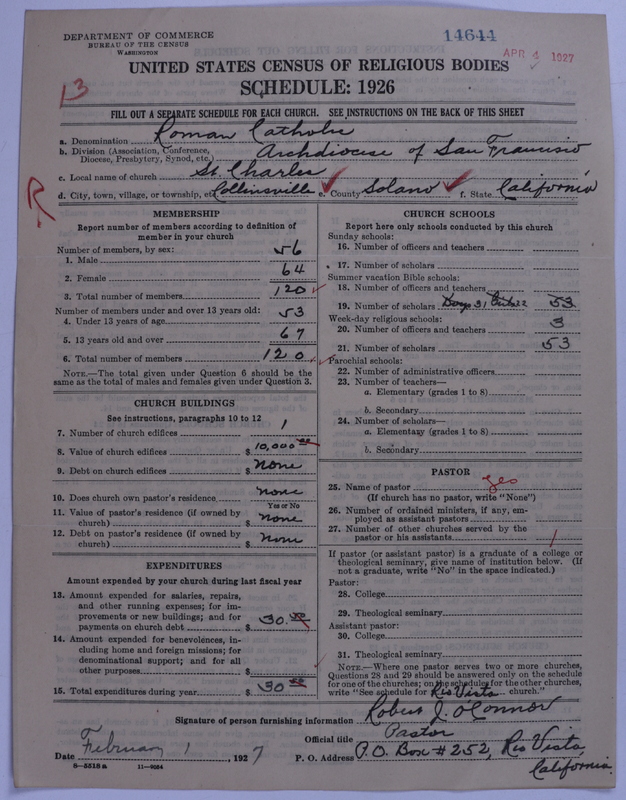 DEPARTMENT OF COMMERCE
BUREAU OF THE CENSUS
WASHINGTON
14644
APR 4 1927
UNITED STATES CENSUS OF RELIGIOUS BODIES
SCHEDULE: 1926
13
FILL OUT A SEPARATE SCHEDULE FOR EACH CHURCH. SEE INSTRUCTIONS ON THE BACK OF THIS SHEET
a. Denomination Roman Catholic
b. Division (Association, Conference, Diocese, Presbytery, Synod, etc.) Archdiocese of San Francisco
c. Local name of church St. Charles
R
d. City, town, village, or township, etc. Collinsville e. County Solano f. State California
MEMBERSHIP
Report number of members according to definition of
member in your church
Number of members, by sex:
1. Male 56
2. Female 64
3. Total number of members 120
Number of members under and over 13 years old:
4. Under 13 years of age 53
5. 13 years old and over 67
6. Total number of members 120
NOTE.—The total given under Question 6 should be
same as the total of males and females given under Question 3.
CHURCH BUILDINGS
See instructions, paragraphs 10 to 12
7. Number of church edifices 1
8. Value of church edifices $ 10,000 00
9. Debt on church edifices $ None
10. Does church own pastor's residence None
Yes or No
11. Value of pastor's residence (if owned by
church) $ None
12. Debt on pastor's residence (if owned by
church) $ None
EXPENDITURES
Amount expended by your church during last fiscal year
13. Amount expended for salaries, repairs,
and other running expenses; for im-
provements or new buildings; and for
payments on church debt $ 30.00
14. Amount expended for benevolences, in-
cluding home and foreign missions; for
denominational support; and for all
other purposes $
15. Total expenditures during year $ 30 00
CHURCH SCHOOLS
Report here only schools conducted by this church
Sunday schools:
16. Number of officers and teachers
17. Number of scholars
Summer vacation Bible schools:
18. Number of officers and teachers
19. Number of scholars Boys 31, Girls 22 53
Week-day religious schools:
20. Number of officers and teachers 3
21. Number of scholars 53
Parochial schools:
22. Number of administrative officers
23. Number of teachers—
a. Elementary (grades 1 to 8)
b. Secondary
24. Number of scholars—
a. Elementary (grades 1 to 8)
b. Secondary
PASTOR
25. Name of pastor yes
(If church has no pastor, write "None")
26. Number of ordained ministers, if any, em-
ployed as assistant pastors
27. Number of other churches served by the
pastor or his assistants 1
If pastor (or assistant pastor) is a graduate of a college or
theological seminary, give name of institution below. (If
not a graduate, write "No" in the space indicated.)
Pastor:
28. College
29. Theological seminary
Assistant pastor:
30. College
31. Theological seminary
NOTE.—Where one pastor serves two or more churches,
Questions 28 and 29 should be answered only on the schedule
for one of the churches; on the schedules for the other churches,
write "See schedule for Rio Vista church."
Signature of person furnishing information Robert J. O'Connor
Official title Pastor
Date February 1, 1927 P. O. Address P.O. Box #252, Rio Vista,
California.
8—5518a 11—9054